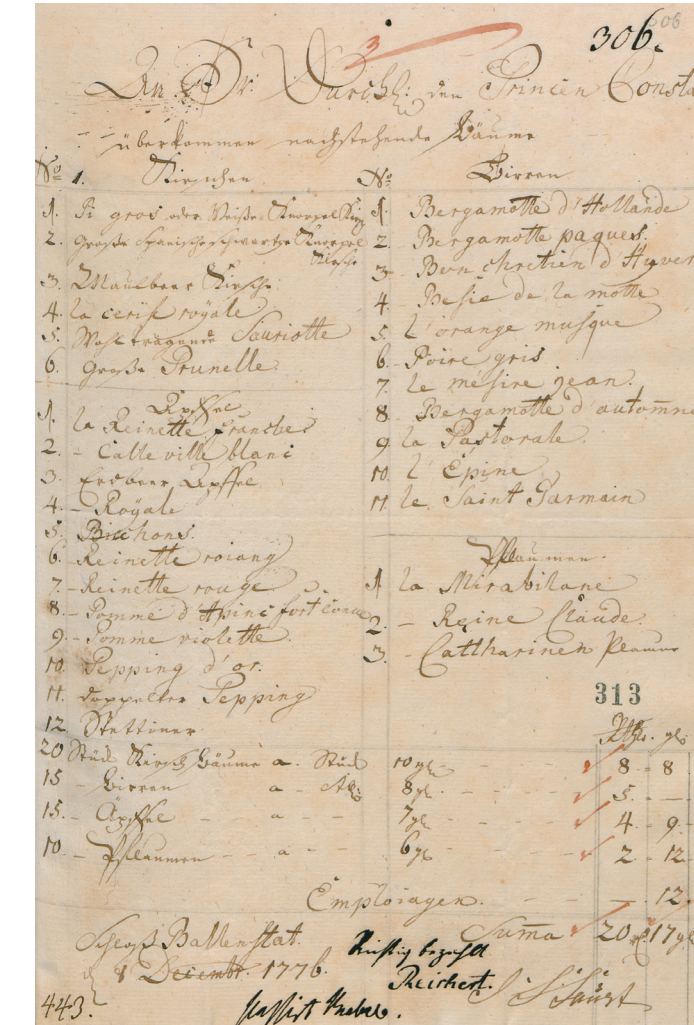 306.
306
3
An Dr. Durchl: den Princen Consta
überkommen nachstehende Bäume
No 1. Kirschen
1. Pi gros oder Weiße Knorpel Kirsch
2. Große Spanische schwartze Knorpel
Kirsche
3. Maulbeer Kirsche.
4. la cerise royale
5. Wohl tragende Sauriotte
6. Große Prunelle.
Äpffel
1. la Reinette franches
2. - Calle ville blanc
3. Erdbeer Äpffel
4. - Royale
5. Bicchons.
6. - Reinette
7. - Reinette rouge
8. - Pomme d'Apini fort
9. - Pomme violette.
10. Pepping d'or.
11. doppelter Pepping
12. Stettiner.
No Birren
1. Bergamotte d'Hollande
2. Bergamotte paques.
3. Bon chretien d'Hyver
4. Besie de la motte
5. l'orange musque
6. Poire gris
7. le messire jean.
8. Bergamotte d'automne
9. la Pastorale.
10. l'Epine
11. le Saint Germain
Pflaumen.
1. la Mirabilane
2. - Reine Claude.
3. - Cattharinen Plaumen
313
Rthlr. gl.
20 Stück Kirsch Bäume a. Stück 10 gl. - 8 - 8
15 - Birren a - St: 8 gl. - 5 - -
15. - Äpffel - a - 7 gl - 4 - 9.
10 - Pflaumen - - a - 6 gl - 2 - 12
Emploiagen. - - 12.
Summa 20 rt. 17 gl
Schloß Ballenstat.
d 8 Decembr. 1776.
Richtig bezahlt
Reichert.
443.